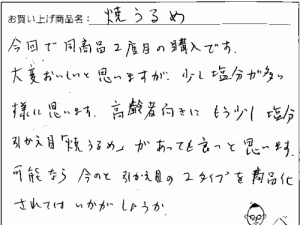 お買い上げ商品名： 焼うるめ
今回で同商品2度目の購入です．
大変おいしいと思いますが、少し塩分が多い
様に思います．高齢者向きに もう少し塩分
引かえ目「焼うるめ」があっても良いと思います．
可能なら 今のと 引かえ目の 2タイプを商品化
されてはいかがでしょうか．